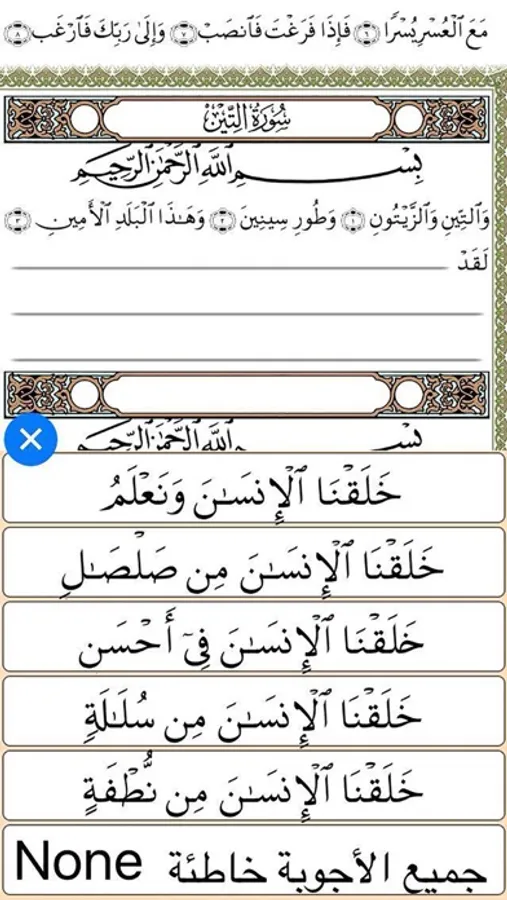 مَعَ ٱلْعُسْرِ يُسْرًا ٦ فَإِذَا فَرَغْتَ فَٱنصَبْ ٧ وَإِلَىٰ رَبِّكَ فَٱرْغَب ٨
سُورَةُ التِّينِ
بِسْمِ ٱللَّهِ ٱلرَّحْمَٰنِ ٱلرَّحِيمِ
وَٱلتِّينِ وَٱلزَّيْتُونِ ١ وَطُورِ سِينِينَ ٢ وَهَٰذَا ٱلْبَلَدِ ٱلْأَمِينِ ٣
لَقَدْ
بِسْمِ ٱللَّهِ ٱلرَّحْمَٰنِ ٱلرَّحِيمِ
خَلَقْنَا ٱلْإِنسَٰنَ وَنَعْلَمُ
خَلَقْنَا ٱلْإِنسَٰنَ مِن صَلْصَٰلٍ
خَلَقْنَا ٱلْإِنسَٰنَ فِىٓ أَحْسَن
خَلَقْنَا ٱلْإِنسَٰنَ مِن سُلَٰلَةٍ
خَلَقْنَا ٱلْإِنسَٰنَ مِن نُّطْفَةٍ
جميع الأجوبة خاطئة None